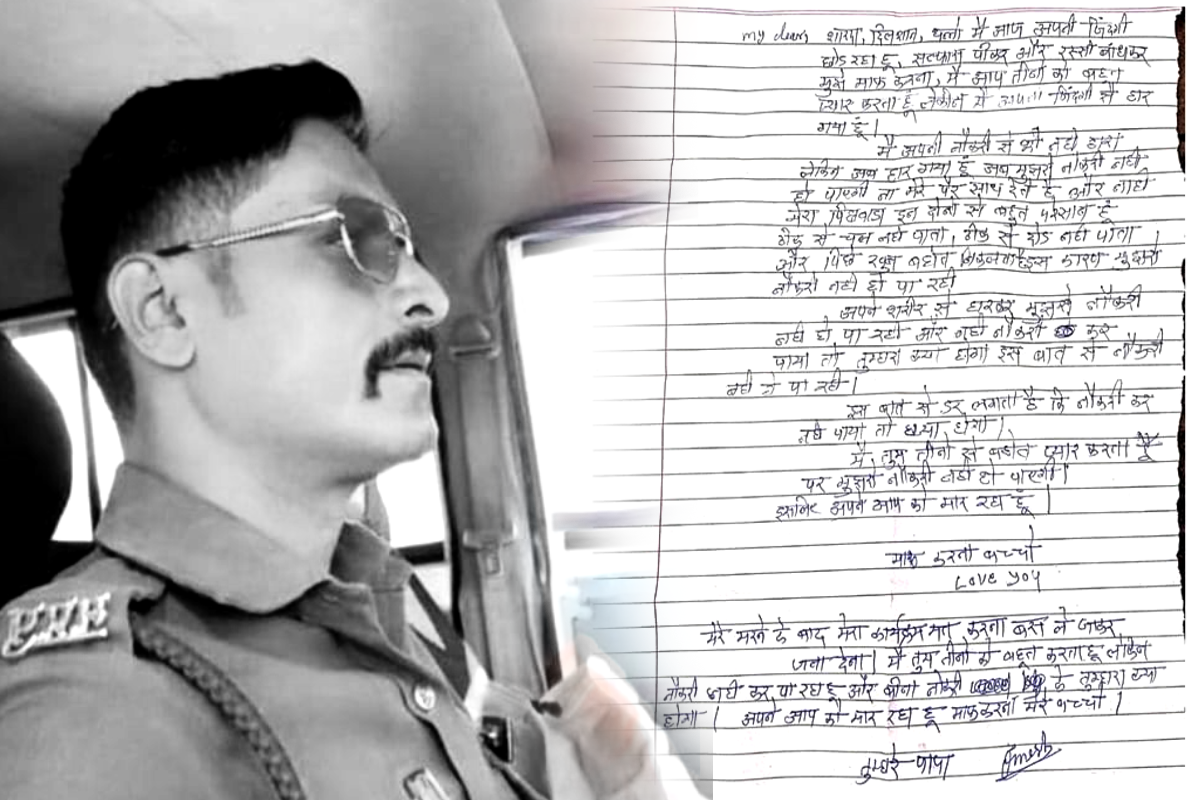 my dear, शारदा, दिलशान, चलो मै आज अपनी जिंदगी
छोड रहा हू, सल्फास पीकर और रस्सी बांधकर
मुझे माफ करना, मै आप तीनो को बहुत
प्यार करता हूं लेकीन मै अपनी जिंदगी से हार
गया हूँ।
मै अपनी नौकरी से भी नही हारा
लेकिन अब हार गया हूँ अब मुझसे नौकरी नही
हो पाएगी ना मेरे पैर साथ देते है और नाही
मेरा पिछवाडा इन दोनो से बहुत परेसान हूं
ठीक से चल नही पाता, ठीक से दौड नही पाता
और पिछे खून बहोत निकलता है इस कारण मुझसे
नौकरी नही हो पा रही
अपने शरीर से हारकर मुझसे नौकरी
नही हो पा रही और नही नौकरी कर
पाया तो तुम्हारा क्या होगा इस बात से नौकरी
नही हो पा रही।
इस बात से डर लगता है कि नौकरी कर
नही पाया तो क्या होगा।
मै, तुम तीनो से बहोत प्यार करता हूँ
पर मुझसे नौकरी नही हो पाएगी।
इसलिए अपने आप को मार रहा हूँ।
माफ करना बच्चो
Love you
मेरे मरने के बाद मेरा कार्यक्रम मत करना बस ले जाकर
जला देना। मै तुम तीनो को बहुत करता हू लेकिन
नौकरी नही कर पा रहा हू और बीना नौकरी के तुम्हारा क्या
होगा। अपने आप को मार रहा हू माफ करना मेरे बच्चो।
तुम्हारे पापा